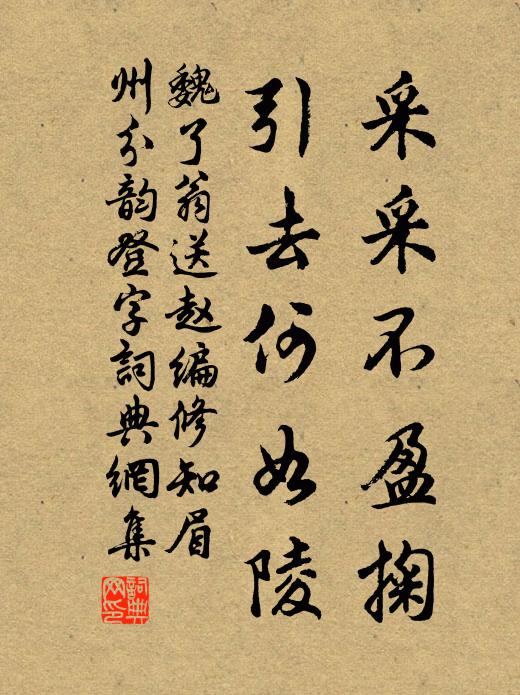 采采不盈掬
引去何如陵
魏了翁送赵编修知眉
州分韵登字詞典網集
詞典网印